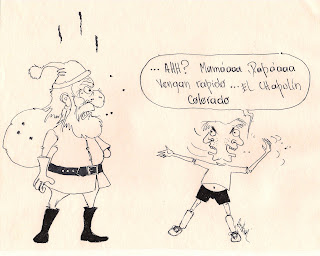 ... AHH? Mamáaaa, Papáaaa
Vengan rapido ... EL CHAPULÍN
Colorado